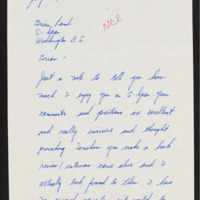 Brian Lamb
C-Span
Washington D.C.
NICE
Brian -
Just a note to tell you how
much I enjoy you on C Span your
comments and positions are excellent
and really incisive and thought
provoking. Somehow you make a book
review/interview come alive and I
actually look forward to them. I have